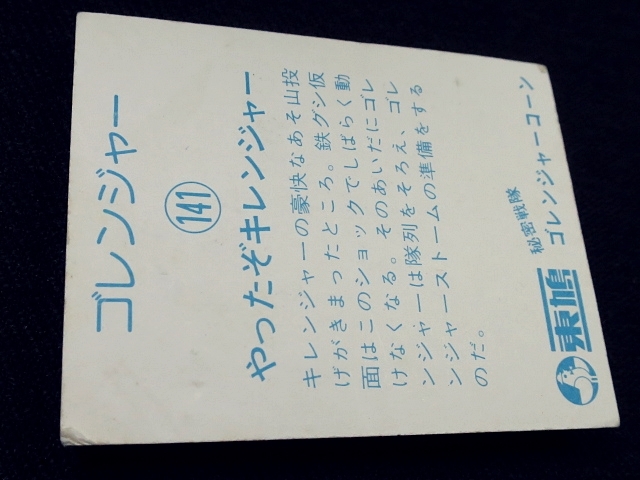 ゴレンジャー
141
やったぞキレンジャー
キレンジャーの豪快なあそ山投
げがきまったところ。鉄グシ仮
面はこのショックでしばらく動
けなくなる。そのあいだにゴレ
ンジャーは隊列をそろえ、ゴレ
ンジャーストームの準備をする
のだ。
東鳩
秘密戦隊
ゴレンジャーコーン